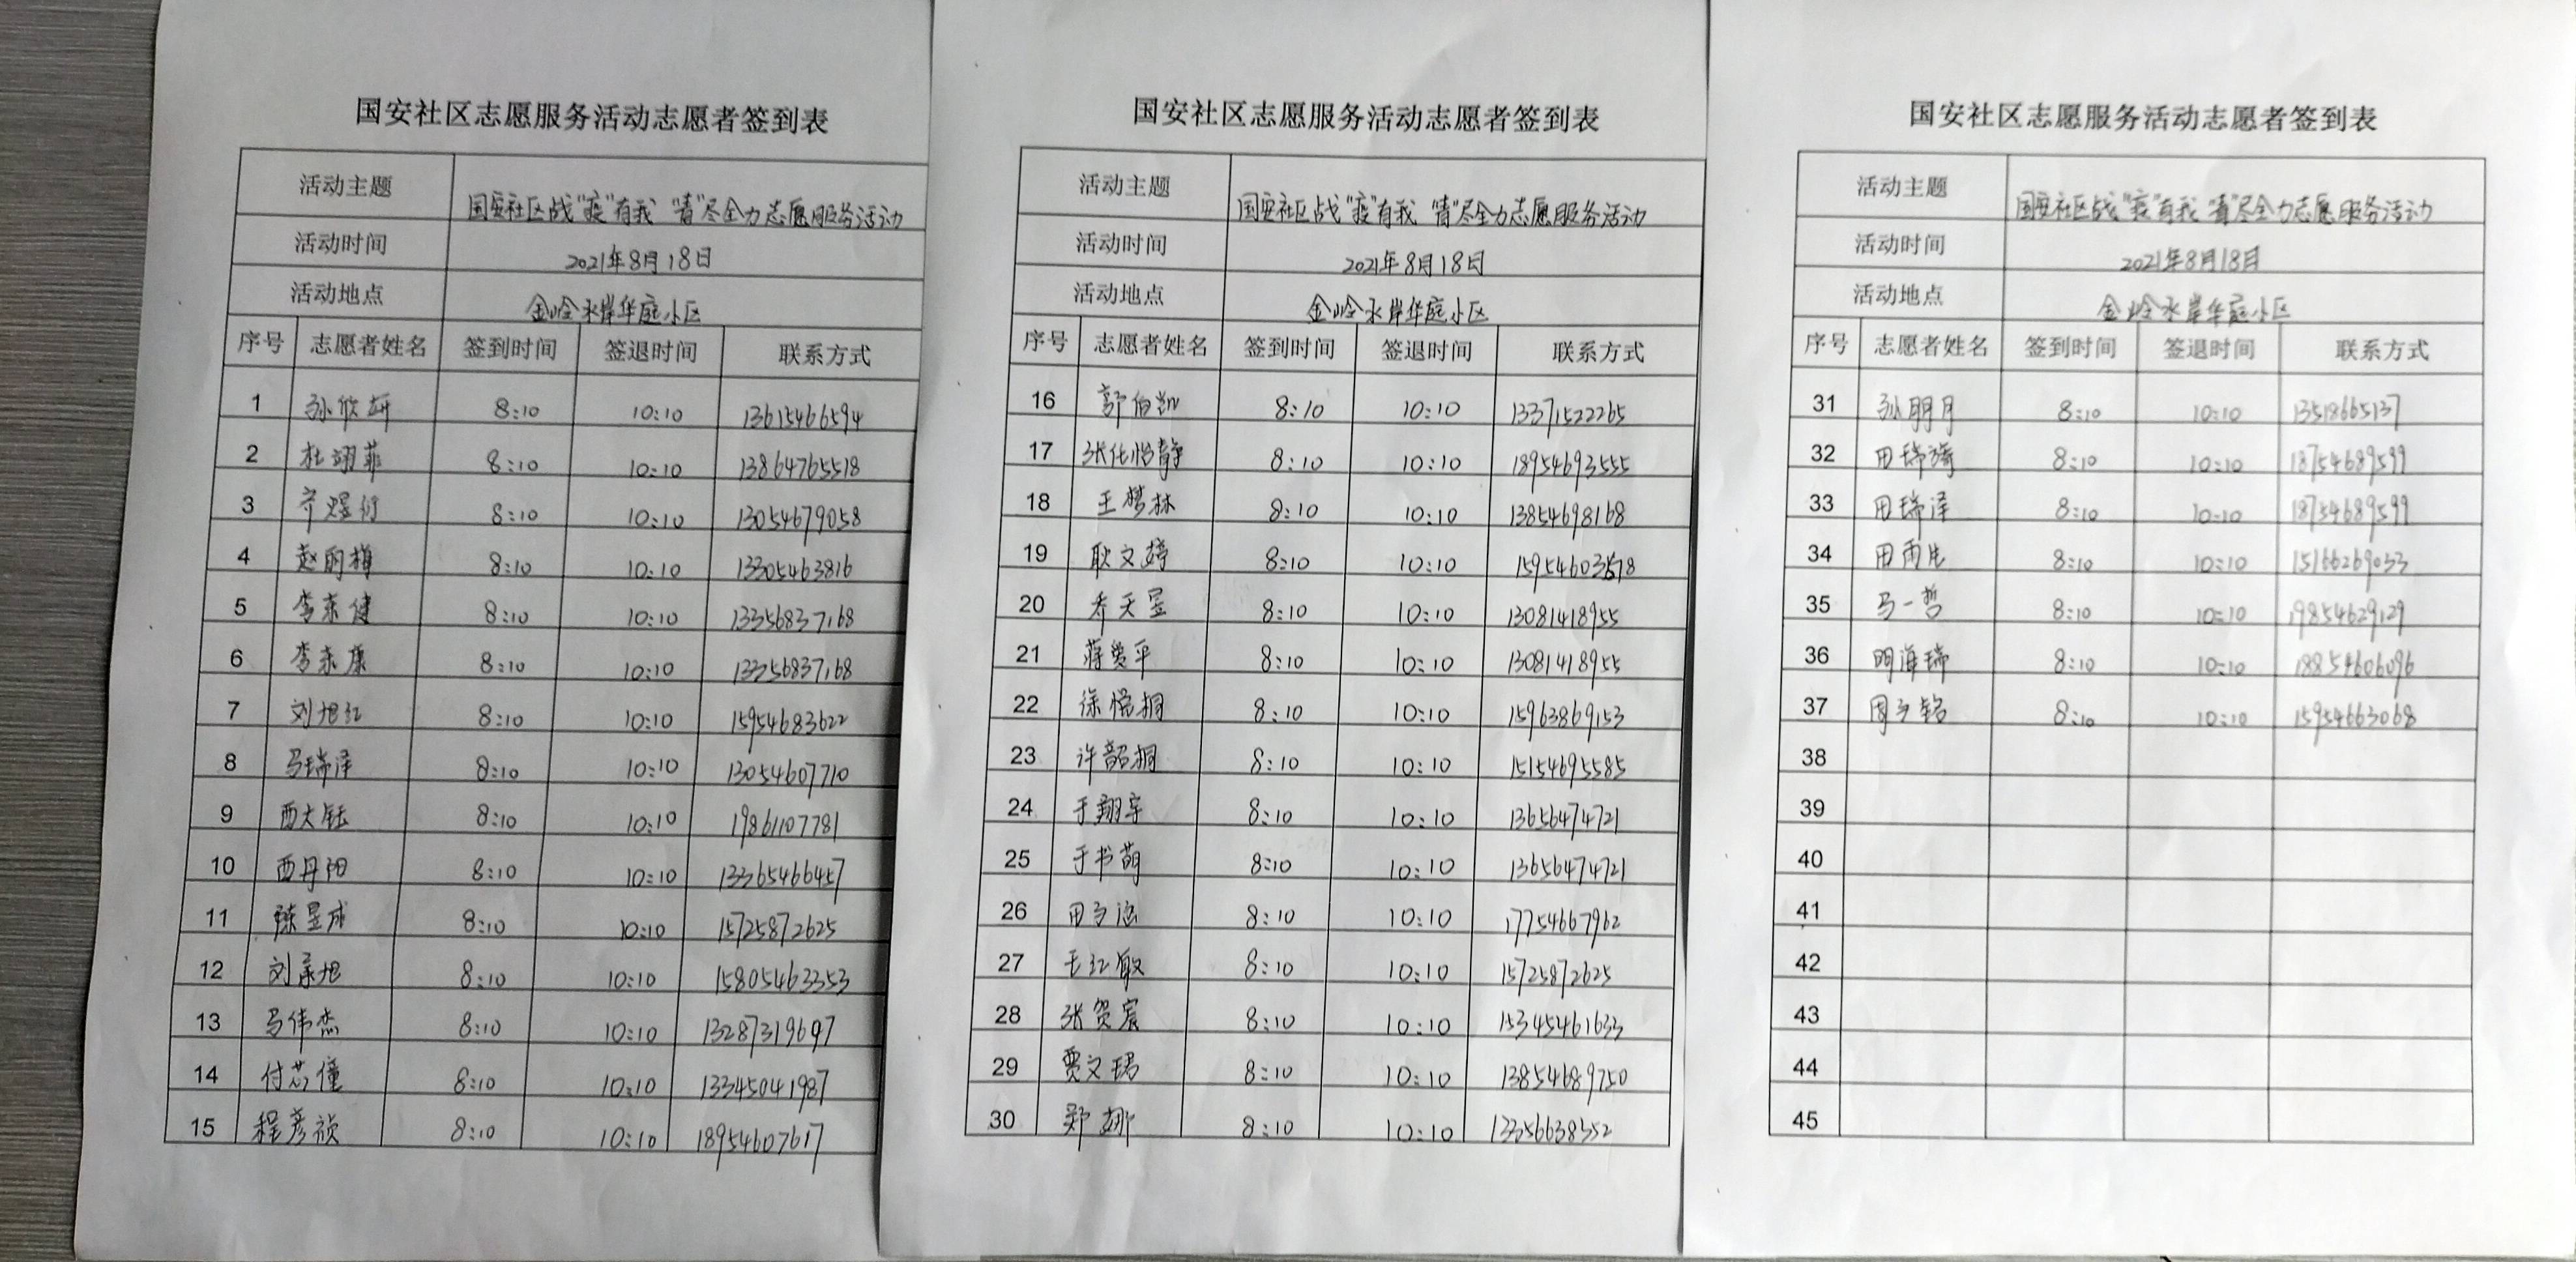 国安社区志愿服务活动志愿者签到表
活动主题 国安社区战"疫"有我 "青"尽全力志愿服务活动
活动时间 2021年8月18日
活动地点 金岭水岸华庭小区
序号 志愿者姓名 签到时间 签退时间 联系方式
1 孙欣妍 8:10 10:10 13615466594
2 杜翊菲 8:10 10:10 13864765518
3 8:10 10:10 13054679058
4 赵丽梅 8:10 10:10 13305463816
5 李东健 8:10 10:10 13356837168
6 李东康 8:10 10:10 13356837168
7 刘旭红 8:10 10:10 15954683622
8 马瑞泽 8:10 10:10 13054607710
9 西大钰 8:10 10:10 19861107781
10 西丹阳 8:10 10:10 13365466457
11 陈昱成 8:10 10:10 15725872625
12 刘承旭 8:10 10:10 15805463353
13 马伟杰 8:10 10:10 13287319697
14 付芯僮 8:10 10:10 13345041987
15 程彦祯 8:10 10:10 18954607617
国安社区志愿服务活动志愿者签到表
活动主题 国安社区战"疫"有我 "青"尽全力志愿服务活动
活动时间 2021年8月18日
活动地点 金岭水岸华庭小区
序号 志愿者姓名 签到时间 签退时间 联系方式
16 郭伯凯 8:10 10:10 13371522265
17 张化怡静 8:10 10:10 18954693555
18 王梦林 8:10 10:10 13854698168
19 耿文婷 8:10 10:10
20 乔天昱 8:10 10:10 13081418955
21 蒋贵平 8:10 10:10 13081418955
22 徐悟桐 8:10 10:10 15963869153
23 许韶桐 8:10 10:10 15154695585
24 于翔宇 8:10 10:10 13656474721
25 于书萌 8:10 10:10 13656474721
26 田子涵 8:10 10:10 17754667962
27 王红敏 8:10 10:10 15725872625
28 张贺宸 8:10 10:10 15345461633
29 贾文珺 8:10 10:10 13854689750
30 郑娜 8:10 10:10 13356638552
国安社区志愿服务活动志愿者签到表
活动主题 国安社区战"疫"有我 "青"尽全力志愿服务活动
活动时间 2021年8月18日
活动地点 金岭水岸华庭小区
序号 志愿者姓名 签到时间 签退时间 联系方式
31 孙明月 8:10 10:10 13518665137
32 田瑞 8:10 10:10 18754689599
33 田瑞泽 8:10 10:10 18754689599
34 田雨生 8:10 10:10 15166269033
35 马一哲 8:10 10:10 19854629129
36 明海瑞 8:10 10:10 18854606096
37 周子铭 8:10 10:10 15954663068
38
39
40
41
42
43
44
45